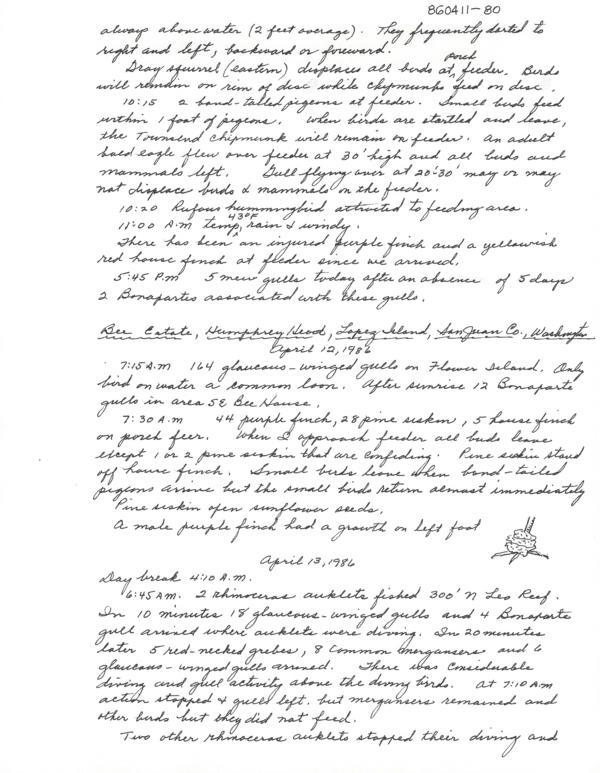 860411-80
always above water (2 feet average). They frequently darted to
right and left, backward or foreward.
Gray squirrel (eastern) displaces all birds at porch feeder. Birds
will remain on rim of disc while chipmunks feed on disc.
10:15 2 band-tailed pigeons at feeder. Small birds feed
within 1 foot of pigeons. When birds are startled and leave,
the Townsend chipmunk will remain on feeder. An adult
bald eagle flew over feeder at 30' high and all birds and
mammals left. Gull flying over at 20-30' may or may
not displace birds & mammals on the feeder.
10:20 Rufous hummingbird attracted to feeding area.
11:00 A.M temp 43°F, rain & windy.
There has been an injured purple finch and a yellowish
red house finch at feeder since we arrived.
5:45 P.M 5 mew gulls today after an absence of 5 days
2 Bonapartes associated with these gulls.
Bee Estate, Humphrey Head, Lopez Island, San Juan Co., Washington
April 12, 1986
7:15 A.M 164 glaucous-winged gulls on Flower Island. Only
bird on water a common loon. After sunrise 12 Bonaparte
gulls in area SE Bee House.
7:30 A.M 44 purple finch, 28 pine siskin, 5 house finch
on porch feer. When I approach feeder all birds leave
except 1 or 2 pine siskin that are confiding. Pine siskin stand
off house finch. Small birds leave when band-tailed
pigeons arrive but the small birds return almost immediately
Pine siskin open sunflower seeds.
A male purple finch had a growth on left foot
April 13, 1986
Day break 4:10 A.M.
6:45 AM. 2 rhinoceras auklets fished 300' N Leo Reef.
In 10 minutes 18 glaucous-winged gulls and 4 Bonaparte
gull arrived where auklets were diving. In 20 minutes
later 5 red-necked grebes, 8 Common mergansers and 6
glaucous-winged gulls arrived. There was considerable
diving and gull activity above the diving birds. At 7:10 A.M
action stopped & gulls left, but mergansers remained and
other birds but they did not feed.
Two other rhinoceras auklets stopped their diving and